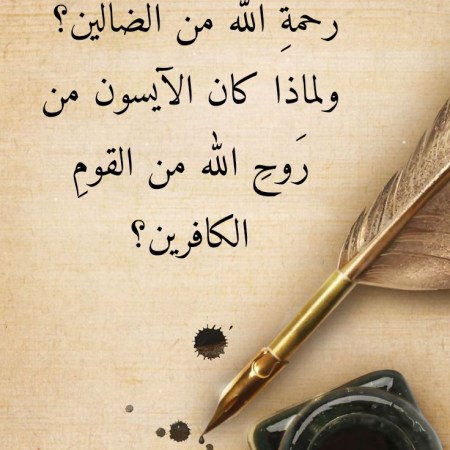 رحمةِ الله من الضالين؟
ولماذا كان الآيسون من
رَوحِ الله من القومِ
الكافرين؟